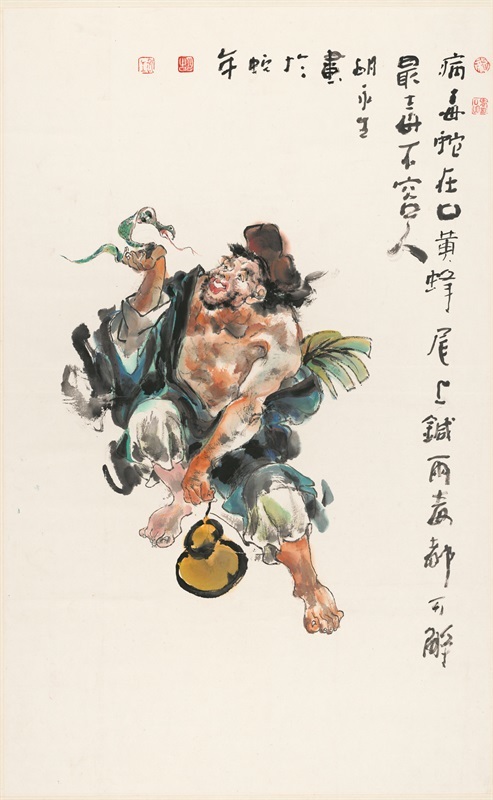 病毒蛇在口黄蜂尾上鍼兩毒都可解
最毒不容人
胡永生
畫
於
蛇
年